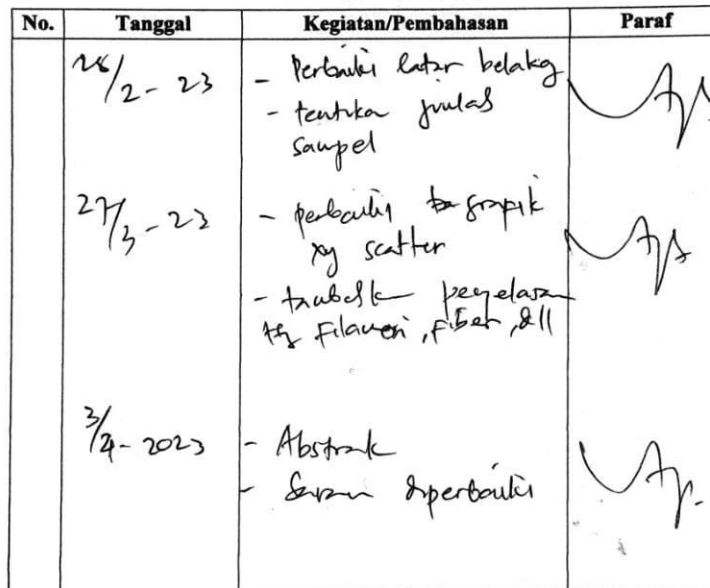 No. Tanggal Kegiatan/Pembahasan Paraf
28/2 - 23 - Perbaiki latar belakg
- tentukan jumlah
sampel
27/3 - 23 - perbaiki grafik
xy scatter
- tambahk penjelasan
ttg Filamen, Fiber, dll
3/4 - 2023 - Abstrak
- Saran diperbaiki